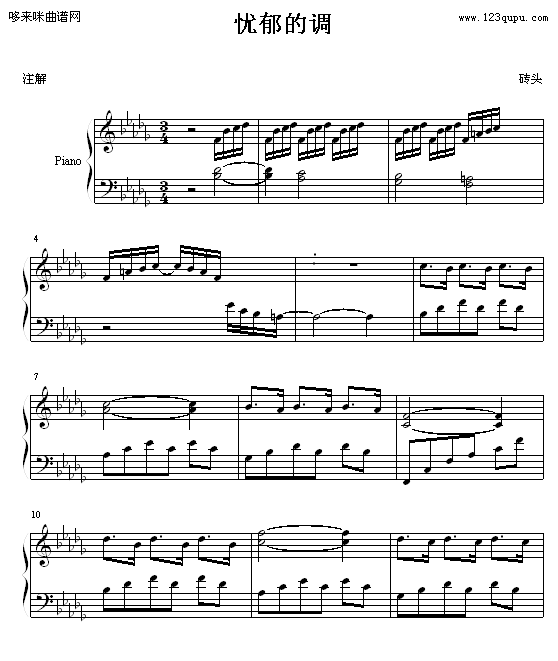 哆来咪曲谱网
忧郁的调
www.123qupu.com
注解
砖头
Piano
3
4
3
4
4
7
10